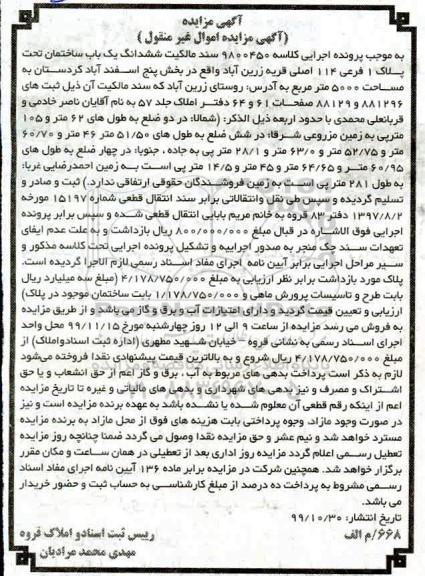 آگهی مزایده
(آگهی مزایده اموال غیر منقول )
به موجب پرونده اجرایی کلاسه ۹۸۰۰۴۵۰ سند مالکیت ششدانگ یک باب ساختمان تحت
پلاک ۱ فرعی ۱۱۴ اصلی قریه زرین آباد واقع در بخش پنج اسفند آباد کردستان به
مساحت ۵۰۰۰ متر مربع به آدرس: روستای زرین آباد که سند مالکیت آن ذیل ثبت های
۸۸۱۲۹۶ و ۸۸۱۲۹ صفحات ۶۱ و ۶۴ دفتر املاک جلد ۵۷ به نام آقایان ناصر خادمی و
قربانعلی محمدی با حدود اربعه ذیل الذکر: (شمالا: در دو ضلع به طول های ۶۲ متر و ۱۰۵
مترپی به زمین مزروعی شرقا: در شش ضلع به طول های ۵۱/۵۰ متر ۴۶ متر و ۶۰/۷۰
متر و ۵۲/۷۵ متر و ۶۳/۰ متر و ۲۸/۱ متر پی به جاده ، جنوبا: در چهار ضلع به طول های
۶۰/۹۵ متر و ۶۴/۶۵ متر و ۴۵ متر و ۱۴/۵ متر پی است به زمین احمدرضایی غربا:
به طول ۲۸۱ متر پی است به زمین فروشندگان حقوقی ارتفاقی ندارد.) ثبت و صادر و
تسلیم گردیده و سپس مع نقل وانتقالاتی برابر سند انتقال قطعی شماره ۱۵۱۹۷ مورخه
۱۳۹۷/۸/۲ دفتر ۸۳ قروه به خانم مریم بابایی انتقال قطعی شده و سپس برابر پرونده
اجرایی فوق الاشاره در قبال مبلغ ۸۰۰/۰۰۰/۰۰۰ ریال بازداشت و به علت عدم ایفای
تعهدات سند چک منجر به صدور اجراییه و تشکیل پرونده اجرایی تحت کلاسه مذکور و
سیر مراحل اجرایی برابر آیین نامه اجرای مفاد اسناد رسمی لازم الاجرا گردیده است.
پلاک مورد بازداشت برابر نظر ارزیابی به مبلغ ۴/۱۷۸/۷۵۰/۰۰۰ (مبلغ سه میلیارد ریال
بابت طرح و تاسیسات پرورش ماهی و ۱/۱۷۸/۷۵۰/۰۰۰ بابت ساختمان موجود در پلاک)
ارزیابی و تعیین قیمت گردید و دارای امتیازات آب و برق و گاز می باشد و از طریق مزایده
به فروش می رسد مزایده از ساعت ۹ الی ۱۲ روز چهارشنبه مورخ ۹۹/۱۱/۱۵ محل واحد
اجرای اسناد رسمی به نشانی قروه - خیابان شهید مطهری (اداره ثبت اسنادواملاک) از
مبلغ ۴/۱۷۸/۷۵۰/۰۰۰ ریال شروع و به بالاترین قیمت پیشنهادی نقدا فروخته می‌شود
لازم به ذکر است پرداخت بدهی های مربوط به آب ، برق و گاز اعم از حق انشعاب و یا حق
اشتراک و مصرف و نیز بدهی های شهرداری و بدهی های مالیاتی و غیره تا تاریخ مزایده
اعم از اینکه رقم قطعی آن معلوم شده یا نشده باشد به عهده برنده مزایده است و نیز
در صورت وجود مازاد، وجوه پرداختی بابت هزینه های فوق از محل مازاد به برنده مزایده
مسترد خواهد شد و نیم عشر و حق مزایده نقدا وصول می گردد ضمنا چنانچه روز مزایده
تعطیل رسمی اعلام گردد مزایده روز اداری بعد از تعطیلی در همان ساعت و مکان مقرر
برگزار خواهد شد. همچنین شرکت در مزایده برابر ماده ۱۳۶ آیین نامه اجرای مفاد اسناد
رسمی مشروط به پرداخت ده درصد از مبلغ کارشناسی به حساب ثبت و حضور خریدار
می باشد.
تاریخ انتشار: ۹۹/۱۰/۳۰
۶۶۸/م الف
رییس ثبت اسناد و املاک قروه
مهدی محمد مرادیان